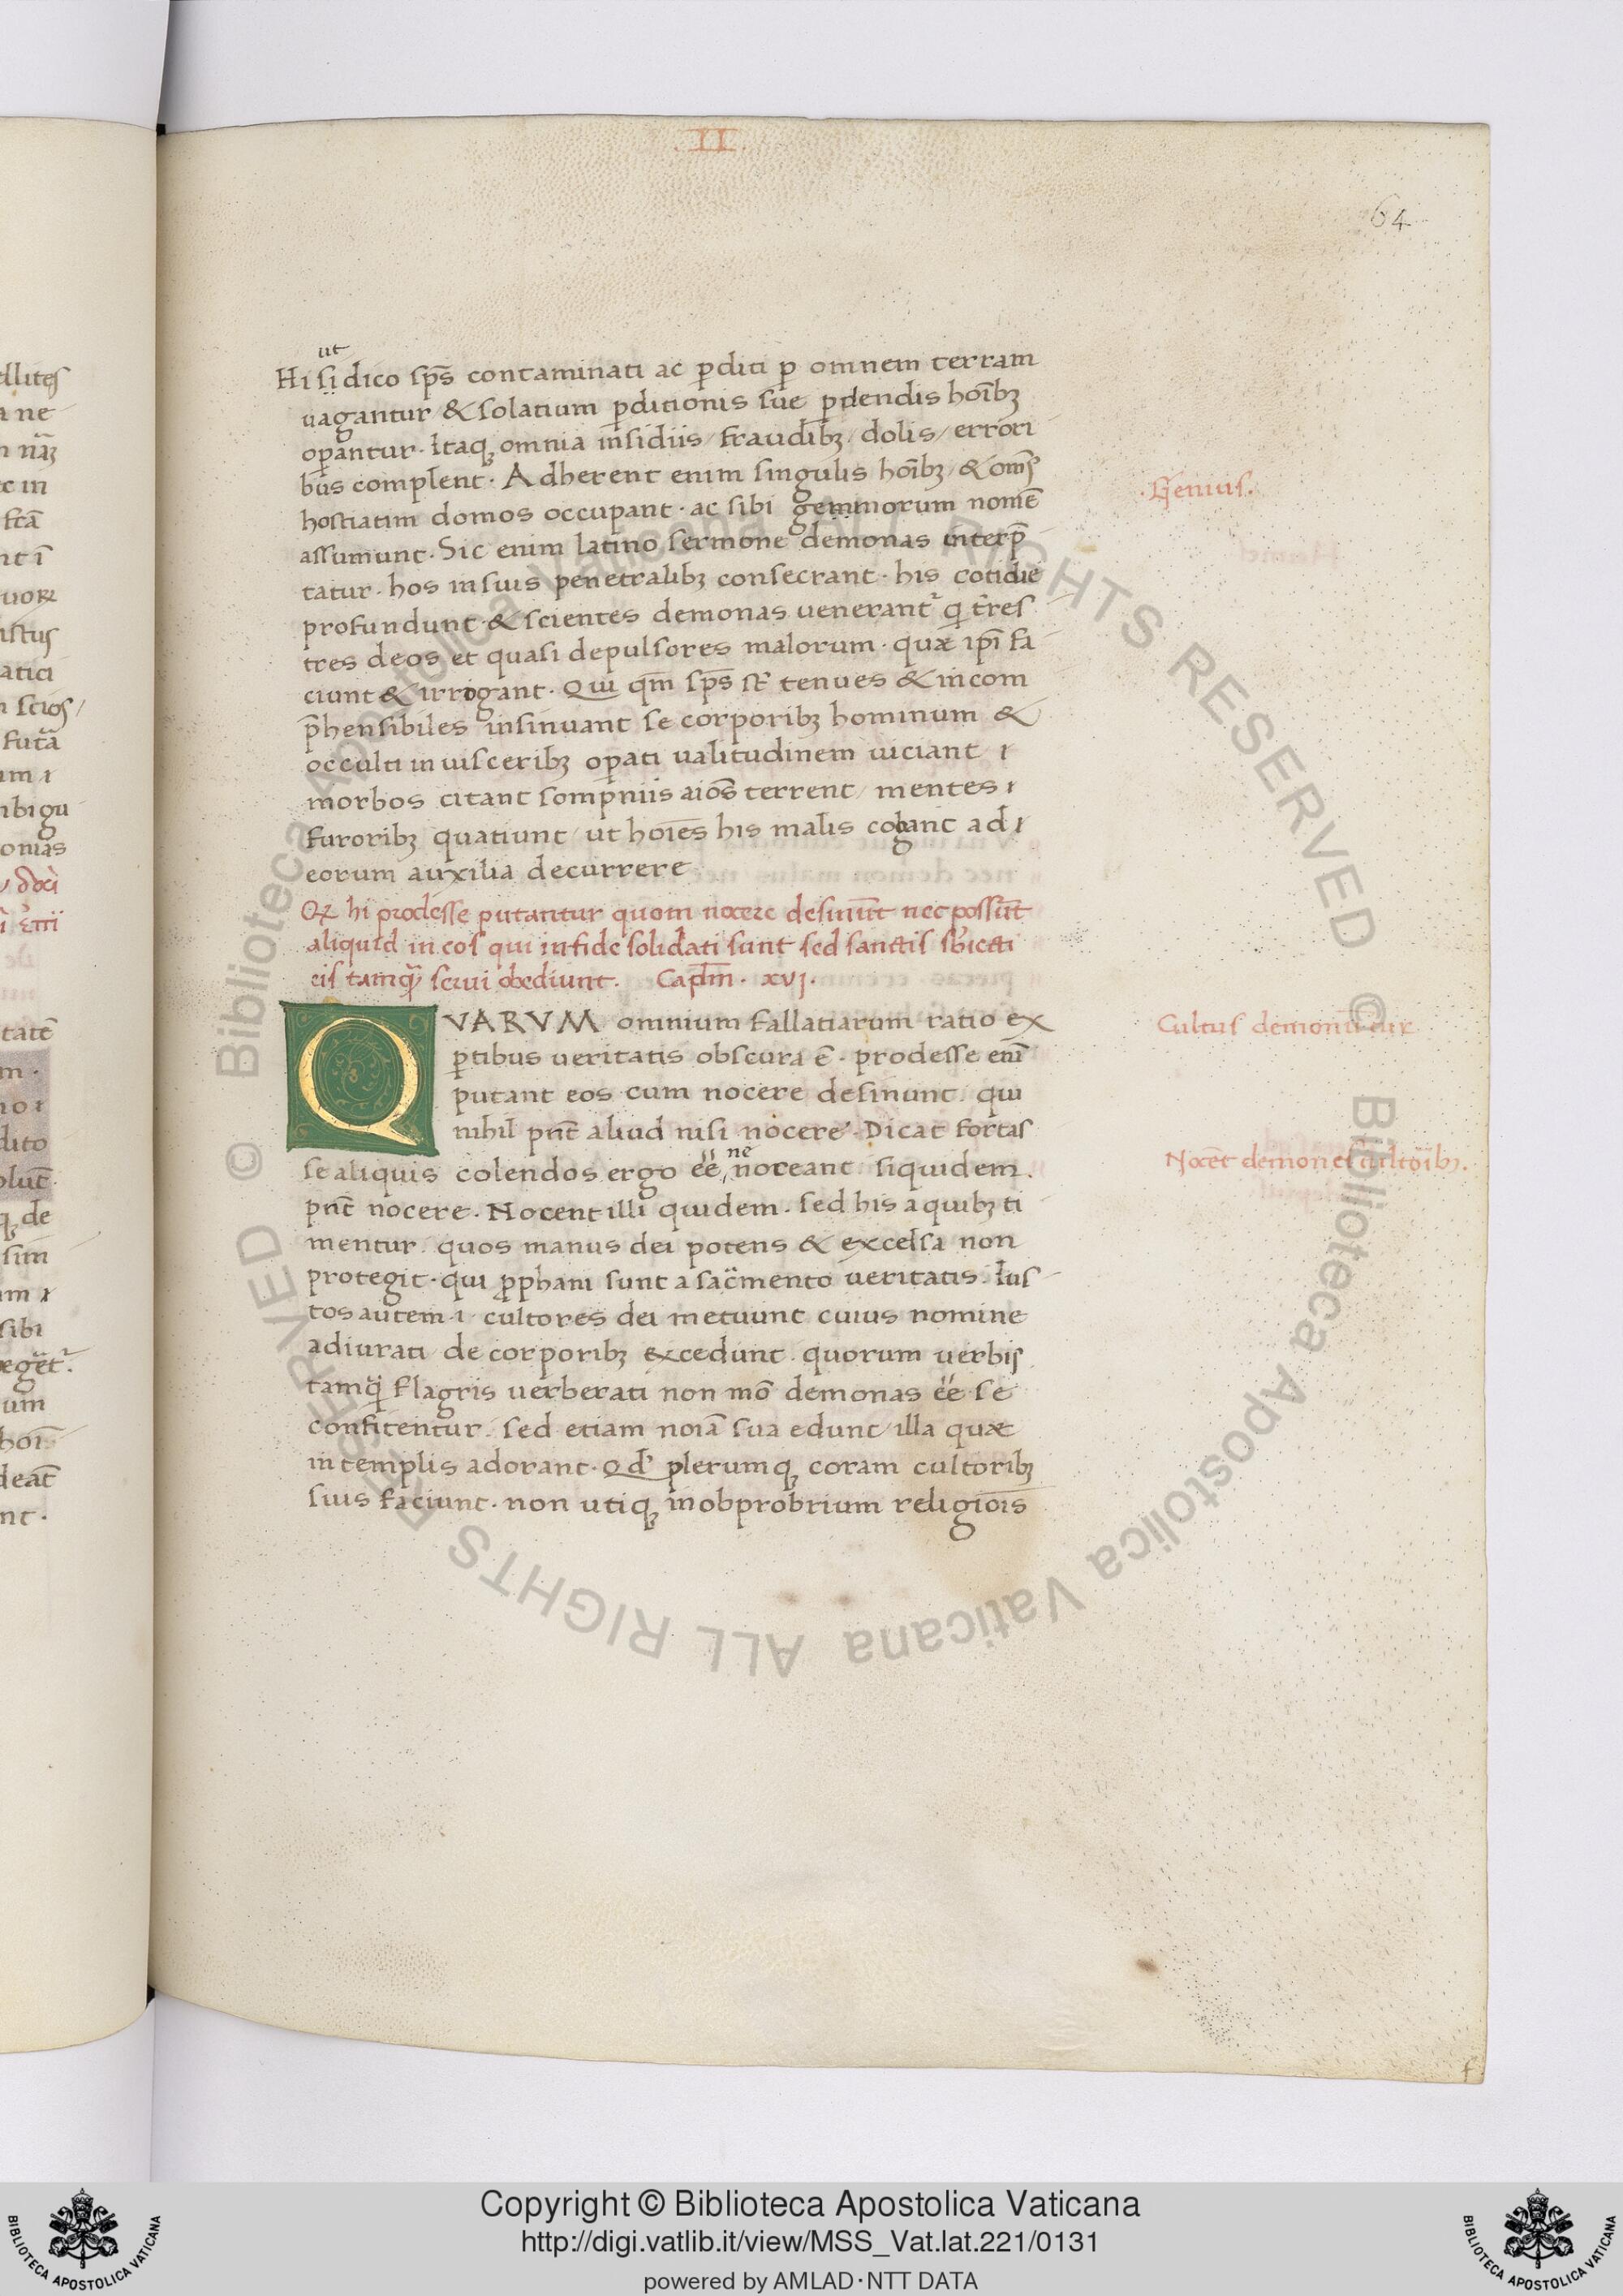 .II.
64
ut
Hi si dico sp̄s contaminati ac ꝑditi ꝑ omnem terram
uagantur & solatium ꝑditionis sue ꝑdendis hoībꝫ
oꝑantur. Itaqꝫ omnia insidiis / fraudibꝫ / dolis / errori
bus complent. Adherent enim singulis hoībꝫ / & om̄s
hostiatim domos occupant. ac sibi gemmorum nomē
assumunt. Sic enim latino sermone demonas interp̄
tatur. hos in suis penetralibꝫ consecrant. his cotidie
profundunt & scientes demonas uenerant᷑ q̈ t̄res
tres deos et quasi depulsores malorum. quæ ip̄i fa
ciunt & irrogant. Qui qm̄ sp̄s st̄ tenues & incom
p̄hensibiles insinuant se corporibꝫ hominum &
occulti in uisceribꝫ oꝑati ualitudinem uiciant ı
morbos citant sompniis aīos terrent / mentes ı
furoribꝫ quatiunt / ut hoīes his malis cogant ad ı
eorum auxilia decurrere
Qꝛ hi prodesse putantur quom nocere desinūt nec possūt
aliquid in eos qui in fide solidati sunt sed sanctis sb̄iecti
eis tamq̈ serui obediunt. Capl̄m. xvj.
QVARVM omnium fallatiarum ratio ex
ꝑtibus ueritatis obscura ē. prodesse enī
putant eos cum nocere desinunt. qui
nihil pn̄t aliud nisi nocere. Dicat fortas
se aliquis colendos ergo ēē, noceant siquidem.
ne
pn̄t nocere. Nocent illi quidem. sed his a quibꝫ ti
mentur. quos manus dei potens & excelsa non
protegit. qui ꝓphani sunt a sac̄mento ueritatis. Ius
tos autem ı cultores dei metuunt cuius nomine
adiurati de corporibꝫ excedunt. quorum uerbis
tamq̈ flagris uerberati non mō demonas ēē se
confitentur. sed etiam noīa sua edunt / illa quæ
in templis adorant. Qd̄ plerumqꝫ coram cultoribꝫ
suis faciunt. non utiqꝫ in obprobrium religiōis
.Genius.
Cultus demonū
Nocēt demones cultoribꝫ.
llites
a ne
c in
fcā
nt ī
uoꝝ
atici
scios /
um ı
mbigu
onias
tatē
m.
no ı
dito
qꝫ de
sim
am ı
sibi
um
deāt
nt.
f
Copyright © Biblioteca Apostolica Vaticana
http://digi.vatlib.it/view/MSS_Vat.lat.221/0131
powered by AMLAD·NTT DATA
BIBLIOTECA APOSTOLICA VATICANA
BIBLIOTECA APOSTOLICA VATICANA
© Biblioteca Apostolica Vaticana ALL RIGHTS RESERVED
© Biblioteca Apostolica Vaticana ALL RIGHTS RESERVED